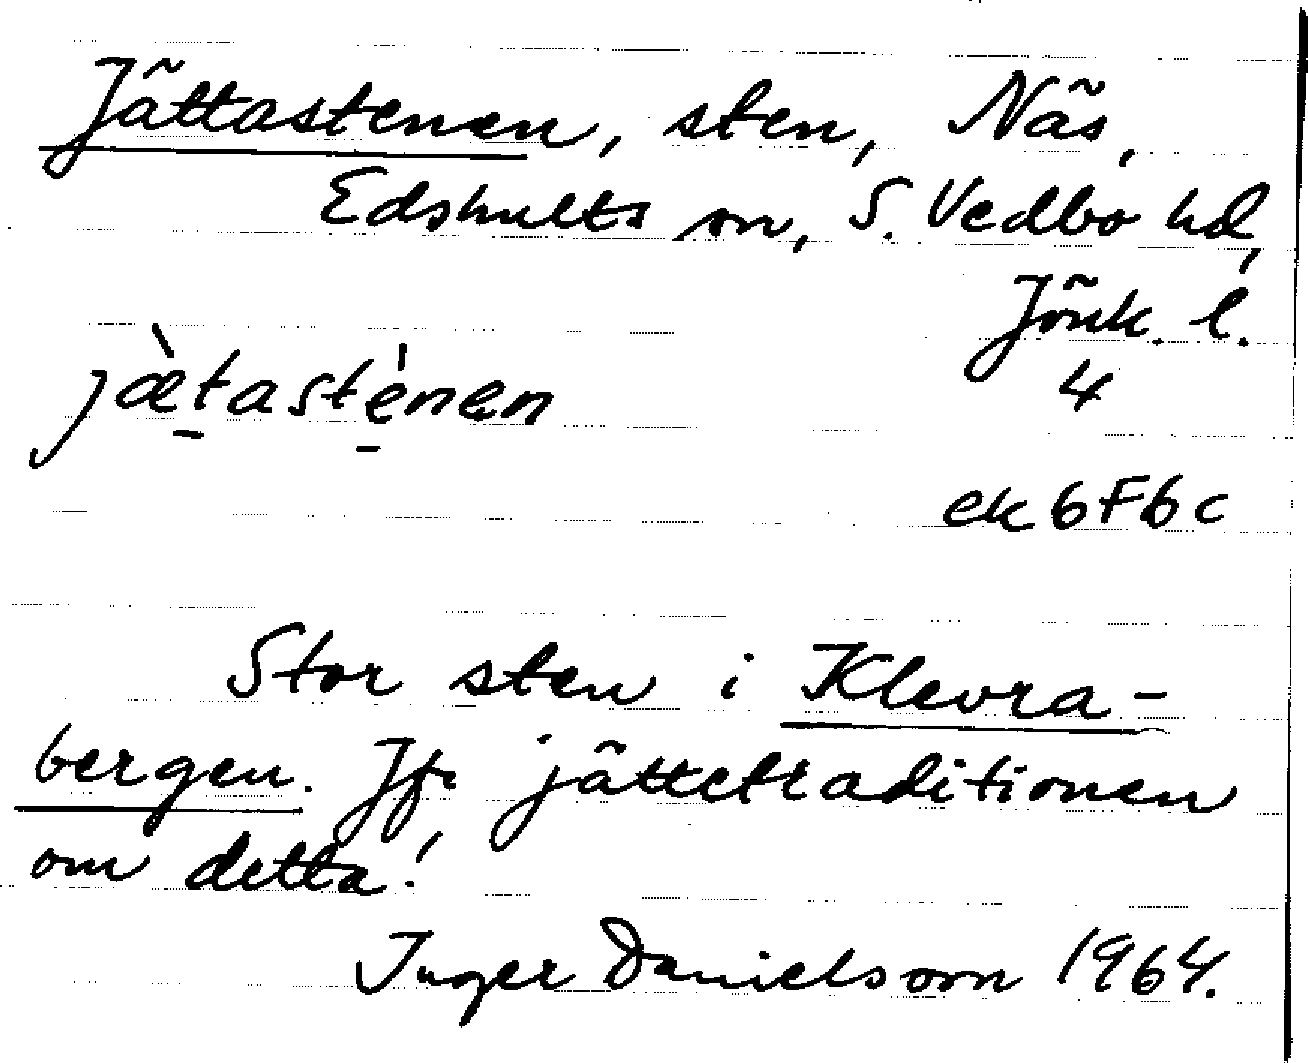 Jättastenen, sten, Näs,
Edshults sn, S. Vedbo hd,
Jönk. l.
jæ̀ta̠sté̠nen
4
ek 6F6c
Stor sten i Klevra-
bergen. Jfr jättetraditionen
om detta!
Inger Danielsson 1964.